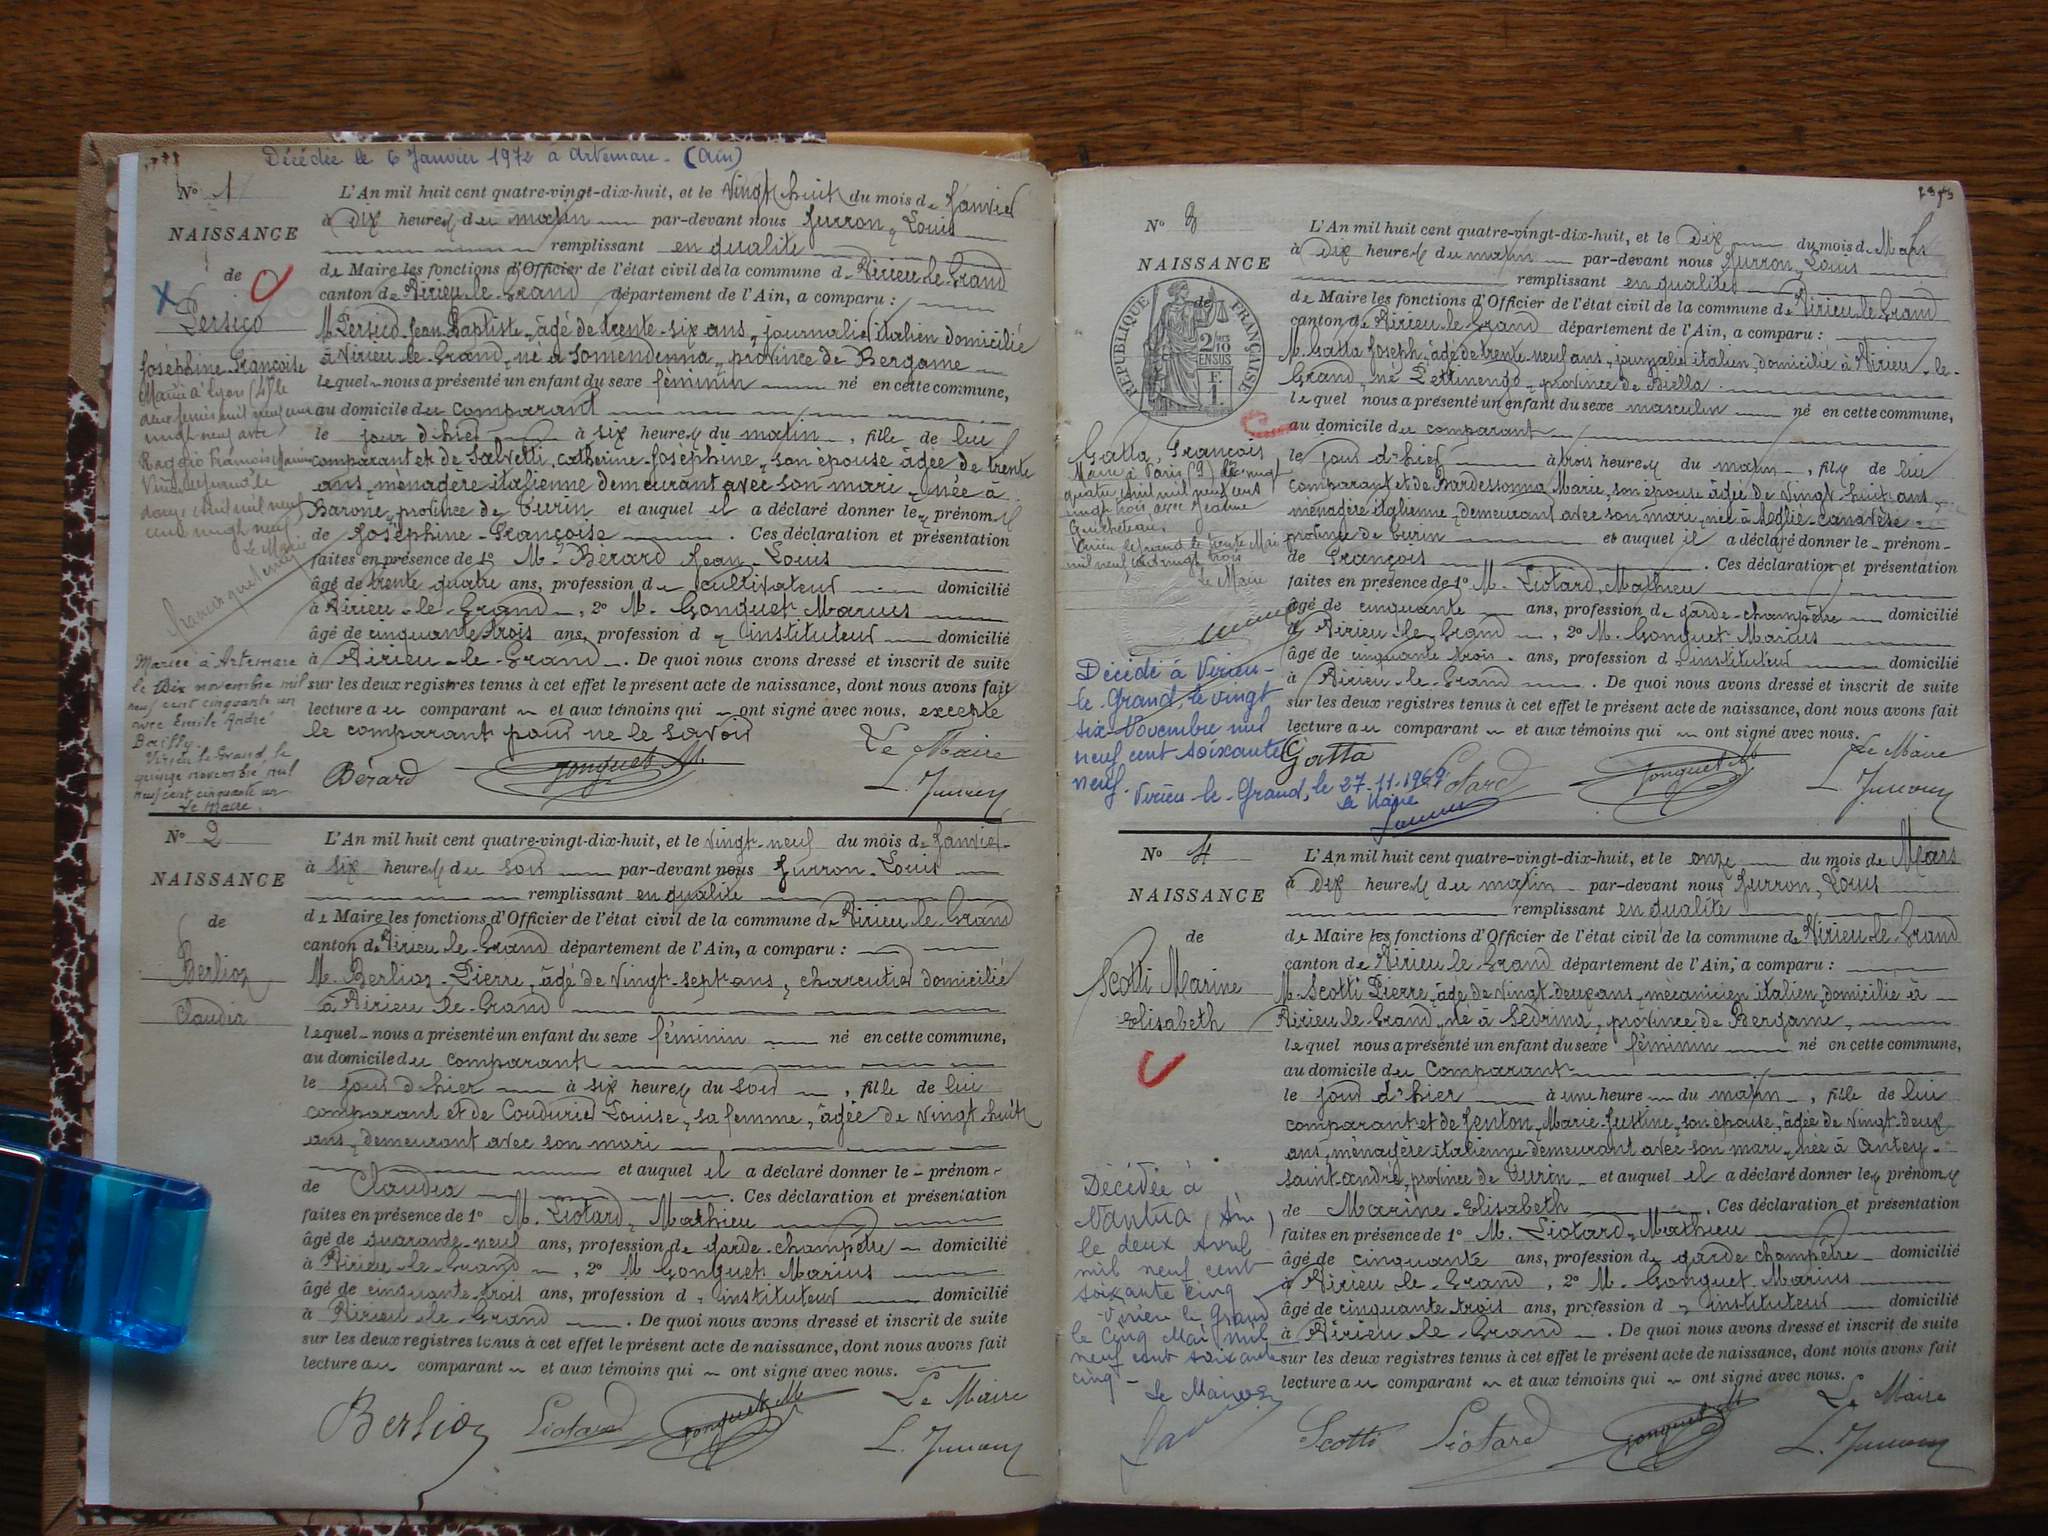 Décédée le 6 Janvier 1972 à Artemare. (Ain)
N° 1
NAISSANCE
de
Persico
Joséphine Françoise
Mariée à Lyon (4) le
deux juin mil neuf cent
vingt neuf avec
Raggio François Marius
Virieu le grand le
douze Juin mil neuf
cent vingt neuf
Le Maire
Mariée à Artemare
le dix novembre mil
neuf cent cinquante un
avec Emile André
Bailly.
Virieu le Grand, le
quinze novembre mil
neuf cent cinquante un
Le Maire.
L'An mil huit cent quatre-vingt-dix-huit, et le Vingt huit du mois de Janvier
à dix heures du matin par-devant nous Jurron, Louis
remplissant en qualité
de Maire les fonctions d'Officier de l'état civil de la commune de Virieu-le-Grand
canton de Virieu-le-Grand département de l'Ain, a comparu :
M. Persico Jean Baptiste, âgé de trente-six ans, journalier italien domicilié
à Virieu-le-Grand, né à Somendenna, province de Bergame
lequel nous a présenté un enfant du sexe féminin né en cette commune,
au domicile du comparant
le jour d'hier à six heures du matin, fille de lui
comparant et de Salvetti, Catherine-Joséphine, son épouse âgée de trente
ans, ménagère italienne demeurant avec son mari, née à
Barone, province de Turin et auquel il a déclaré donner les prénoms
de Joséphine-Françoise. Ces déclaration et présentation
faites en présence de 1° M. Bérard Jean-Louis
âgé de trente quatre ans, profession de cultivateur domicilié
à Virieu-le-Grand, 2° M. Gonguet Marius
âgé de cinquante trois ans, profession d'instituteur domicilié
à Virieu-le-Grand. De quoi nous avons dressé et inscrit de suite
sur les deux registres tenus à cet effet le présent acte de naissance, dont nous avons fait
lecture au comparant et aux témoins qui ont signé avec nous. excepté
le comparant pour ne le savoir
Le Maire
Bérard Gonguet M. L. Jurron
N° 2
NAISSANCE
de
Berlion
Claudia
L'An mil huit cent quatre-vingt-dix-huit, et le vingt-neuf du mois de Janvier
à six heures du soir par-devant nous Jurron, Louis
remplissant en qualité
de Maire les fonctions d'Officier de l'état civil de la commune de Virieu-le-Grand
canton de Virieu-le-Grand département de l'Ain, a comparu :
M. Berlion Pierre, âgé de vingt-sept ans, charcutier domicilié
à Virieu-le-Grand
lequel nous a présenté un enfant du sexe féminin né en cette commune,
au domicile du comparant
le jour d'hier à six heures du soir, fille de lui
comparant et de Coudurier Louise, sa femme, âgée de vingt-huit
ans, demeurant avec son mari
et auquel il a déclaré donner le prénom
de Claudia. Ces déclaration et présentation
faites en présence de 1° M. Liotard, Mathieu
âgé de quarante-neuf ans, profession de garde-champêtre domicilié
à Virieu-le-Grand, 2° M. Gonguet Marius
âgé de cinquante-trois ans, profession d'instituteur domicilié
à Virieu-le-Grand. De quoi nous avons dressé et inscrit de suite
sur les deux registres tenus à cet effet le présent acte de naissance, dont nous avons fait
lecture au comparant et aux témoins qui ont signé avec nous.
Le Maire
Berlion Liotard Gonguet M L. Jurron
N° 3
NAISSANCE
de
RÉPUBLIQUE FRANÇAISE
2 10
EN SUS
1 F.
Gatta, François
Marié à Paris (9) le vingt
quatre
vingt trois avec Jeanne
Virieu le grand le trente Mai
mil neuf cent vingt trois
Le Maire
Décédé à Virieu-
le-Grand, le vingt
six Novembre mil
neuf cent soixante
neuf.
Virieu-le-Grand, le 27.11.1969
Le Maire
L'An mil huit cent quatre-vingt-dix-huit, et le dix du mois de Mars
à dix heures du matin par-devant nous Jurron, Louis
remplissant en qualité
de Maire les fonctions d'Officier de l'état civil de la commune de Virieu-le-Grand
canton de Virieu-le-Grand département de l'Ain, a comparu :
M. Gatta Joseph, âgé de trente-neuf ans, journalier italien, domicilié à Virieu-le-
Grand, né Pettinengo, province de Biella
lequel nous a présenté un enfant du sexe masculin né en cette commune,
au domicile du comparant
le jour d'hier à trois heures du matin, fils de lui
comparant et de Bardessonna Marie, son épouse âgée de vingt-huit ans,
ménagère italienne, demeurant avec son mari, née à Aglié-canavèse
province de Turin et auquel il a déclaré donner le prénom
de François. Ces déclaration et présentation
faites en présence de 1° M. Liotard, Mathieu
âgé de cinquante ans, profession de garde-champêtre domicilié
à Virieu-le-Grand, 2° M. Gonguet Marius
âgé de cinquante trois ans, profession d'instituteur domicilié
à Virieu-le-Grand. De quoi nous avons dressé et inscrit de suite
sur les deux registres tenus à cet effet le présent acte de naissance, dont nous avons fait
lecture au comparant et aux témoins qui ont signé avec nous.
Le Maire
Gatta Liotard Gonguet M L. Jurron
N° 4
NAISSANCE
de
Scotti Marine
Elisabeth
Décédée à
Nantua, Ain,
le deux Avril
mil neuf cent
soixante cinq
Virieu le Grand
le Cinq Mai mil
neuf cent soixante
cinq
Le Maire
L'An mil huit cent quatre-vingt-dix-huit, et le onze du mois de Mars
à dix heures du matin par-devant nous Jurron, Louis
remplissant en qualité
de Maire les fonctions d'Officier de l'état civil de la commune de Virieu-le-Grand
canton de Virieu-le-Grand département de l'Ain, a comparu :
M. Scotti Pierre, âgé de vingt-deux ans, mécanicien italien, domicilié à
Virieu-le-Grand, né à Sedrina, province de Bergame,
lequel nous a présenté un enfant du sexe féminin né en cette commune,
au domicile du comparant
le jour d'hier à une heure du matin, fille de lui
comparant et de Jenton, Marie-Justine, son épouse, âgée de vingt-deux
ans, ménagère italienne demeurant avec son mari, née à Antey-
Saint-André, province de Turin et auquel il a déclaré donner les prénoms
de Marine-Elisabeth. Ces déclaration et présentation
faites en présence de 1° M. Liotard, Mathieu
âgé de cinquante ans, profession de garde champêtre domicilié
à Virieu-le-Grand, 2° M. Gonguet Marius
âgé de cinquante trois ans, profession d'instituteur domicilié
à Virieu-le-Grand. De quoi nous avons dressé et inscrit de suite
sur les deux registres tenus à cet effet le présent acte de naissance, dont nous avons fait
lecture au comparant et aux témoins qui ont signé avec nous.
Le Maire
Scotti Liotard Gonguet M L. Jurron